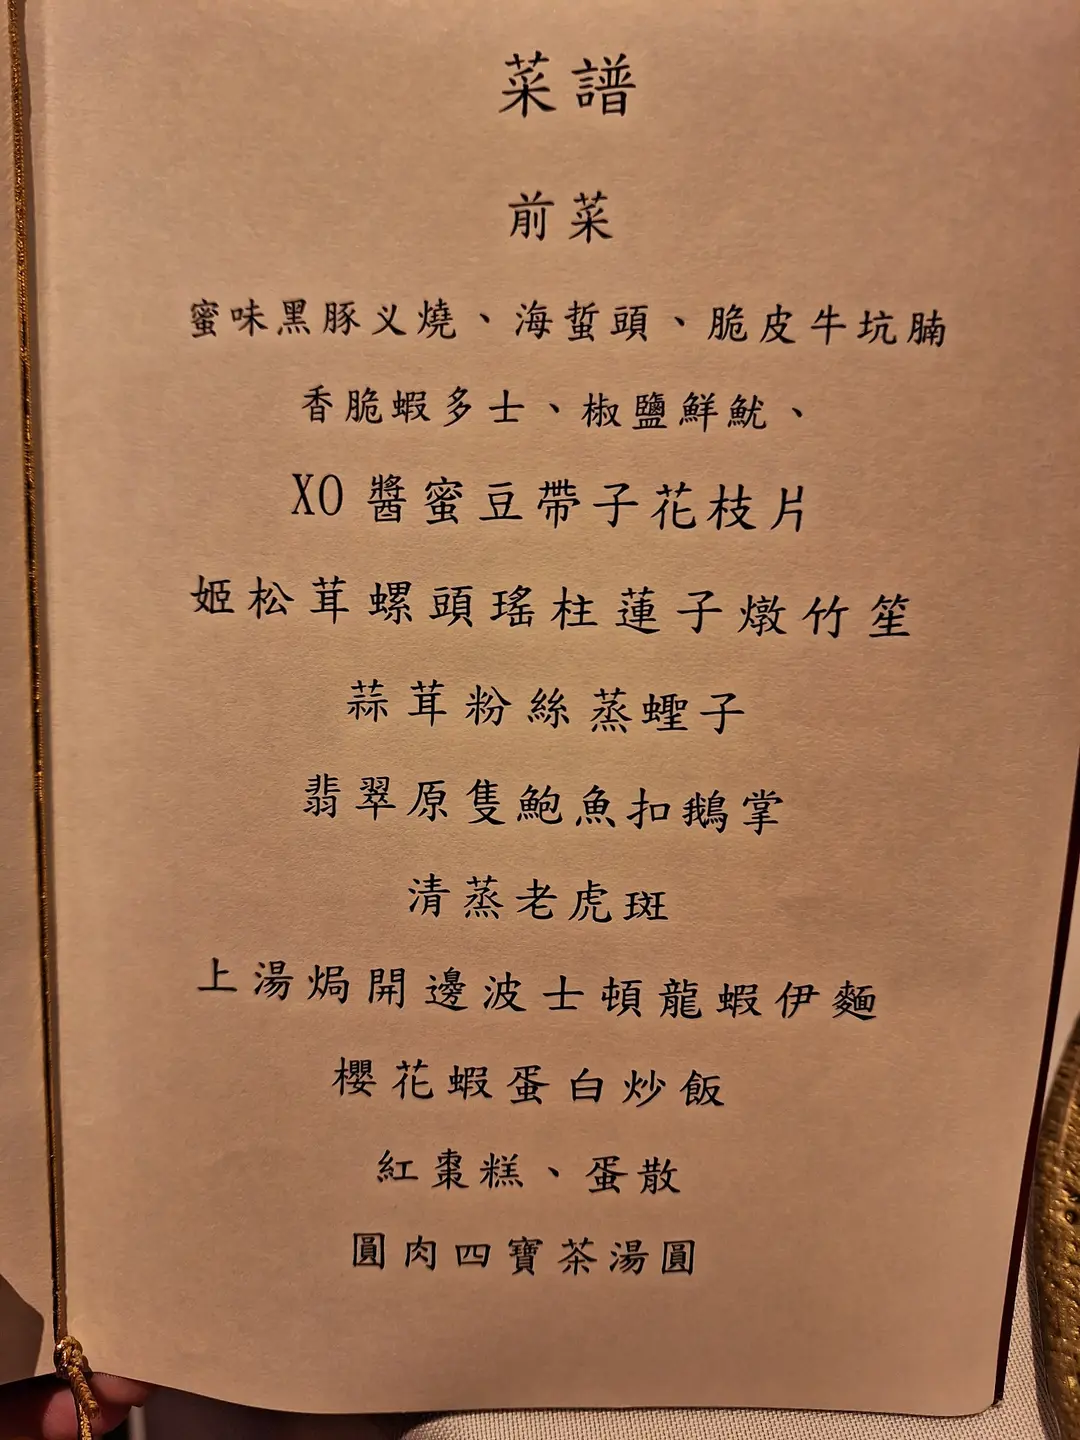 菜譜
前菜
蜜味黑豚义燒、海蜇頭、脆皮牛坑腩
香脆蝦多士、椒鹽鮮魷、
XO 醬蜜豆帶子花枝片
姬松茸螺頭瑤柱蓮子燉竹笙
蒜茸粉絲蒸蟶子
翡翠原隻鮑魚扣鵝掌
清蒸老虎斑
上湯焗開邊波士頓龍蝦伊麵
櫻花蝦蛋白炒飯
紅棗糕、蛋散
圓肉四寶茶湯圓